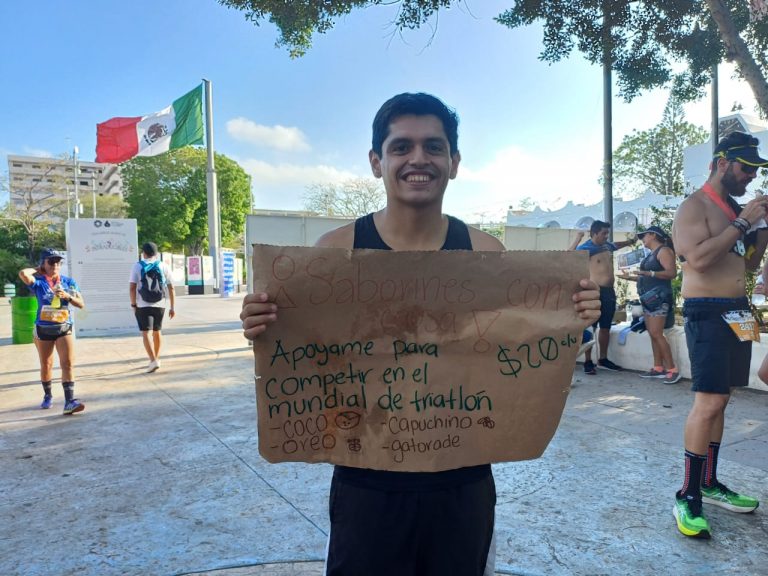 Saborines con
causa!
Apoyame para
$20 c/u
competir en el
mundial de triatlón
-coco
-Capuchino
-oreo
-gatorade